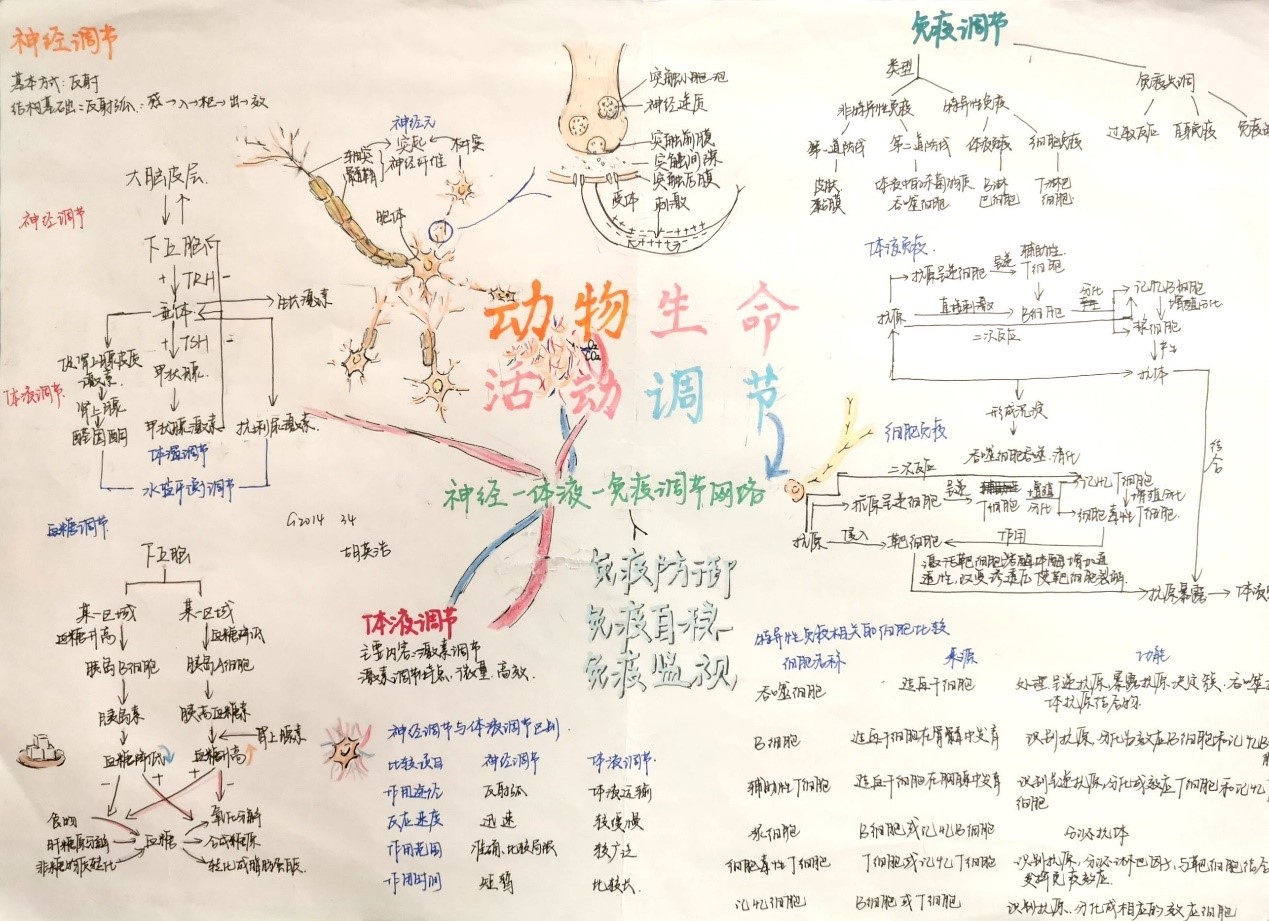 神经调节
基本方式：反射
结构基础：反射弧：感→入→神→出→效
大脑皮层
神经调节
下丘脑
+ TRH -
垂体
生长激素
+ TSH -
促肾上腺皮质
激素
甲状腺
体液调节
肾上腺
醛固酮
甲状腺激素
抗利尿激素
体温调节
水盐平衡调节
神经元
轴突
髓鞘
突起
神经纤维
树突
胞体
突触小胞
神经递质
突触前膜
突触间隙
突触后膜
受体
刺激
动物生命
活动调节
神经—体液—免疫调节网络
免疫防御
免疫自稳
免疫监视
G2014 34
血糖调节
下丘脑
某一区域
某一区域
血糖升高
血糖降低
胰岛B细胞
胰岛A细胞
胰岛素
胰高血糖素
肾上腺素
血糖降低
血糖升高
食物
肝糖原分解
非糖物质转化
血糖
氧化分解
合成糖原
转化成脂肪
体液调节
主要内容：激素调节
激素调节特点：微量、高效.
神经调节与体液调节区别
比较项目 神经调节 体液调节
作用途径 反射弧 体液运输
反应速度 迅速 较缓慢
作用范围 准确、比较局限 较广泛
作用时间 短暂 比较长.
免疫调节
类型
免疫失调
非特异性免疫
特异性免疫
过敏反应
自身免疫
第一道防线
第二道防线
体液免疫
细胞免疫
皮肤
黏膜
体液中的杀菌物质
吞噬细胞
B淋
巴细胞
T淋巴
细胞
体液免疫.
抗原呈递细胞
呈递
辅助性
T细胞
抗原
直接刺激
B细胞
分化
记忆B细胞
增殖分化
浆细胞
二次反应
产生
抗体
形成沉淀
吞噬细胞吞噬.消化
结合
细胞免疫
二次反应
抗原呈递细胞
呈递
T细胞
增殖
分化
记忆T细胞
增殖分化
细胞毒性T细胞
抗原
侵入
靶细胞
作用
抗原暴露
特异性免疫相关的细胞比较
细胞名称 来源 功能
吞噬细胞 造血干细胞 处理、呈递抗原，暴露抗原决定簇、吞噬
体抗原结合物.
B细胞 造血干细胞在骨髓中发育 识别抗原、分化为效应B细胞和记忆B
辅助性T细胞 造血干细胞在胸腺中发育 识别呈递抗原，分化成效应T细胞和记忆
细胞
浆细胞 B细胞或记忆B细胞 分泌抗体
细胞毒性T细胞 T细胞或记忆T细胞 识别抗原，分泌淋巴因子，与靶细胞结合
发挥免疫效应.
记忆细胞 B细胞或T细胞 识别抗原、分化成相应的效应细胞